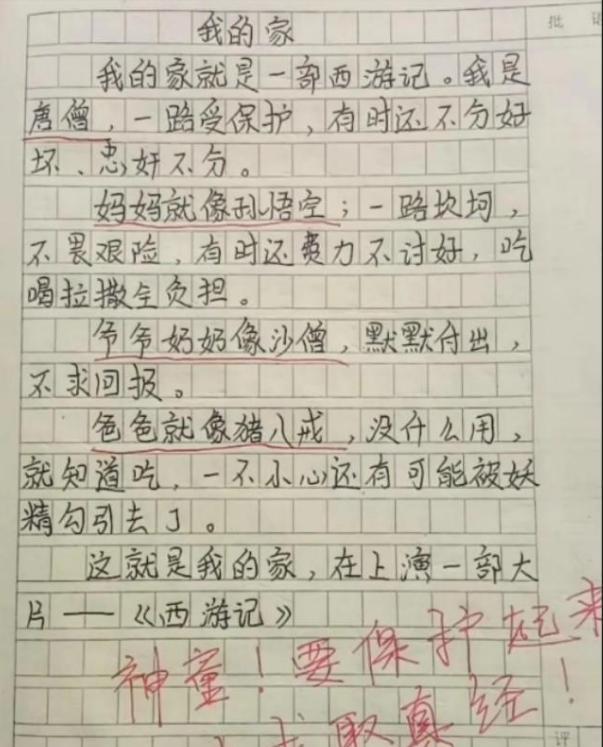 批 语
我的家
我的家就是一部西游记。我是
唐僧，一路受保护，有时还不分好
坏、忠奸不分。
妈妈就像孙悟空；一路坎坷，
不畏艰险，有时还费力不讨好，吃
喝拉撒全负担。
爷爷奶奶像沙僧，默默付出，
不求回报。
爸爸就像猪八戒，没什么用，
就知道吃，一不小心还有可能被妖
精勾引去了。
这就是我的家，在上演一部大
片——《西游记》
神童！要保护起来
取真经！
评